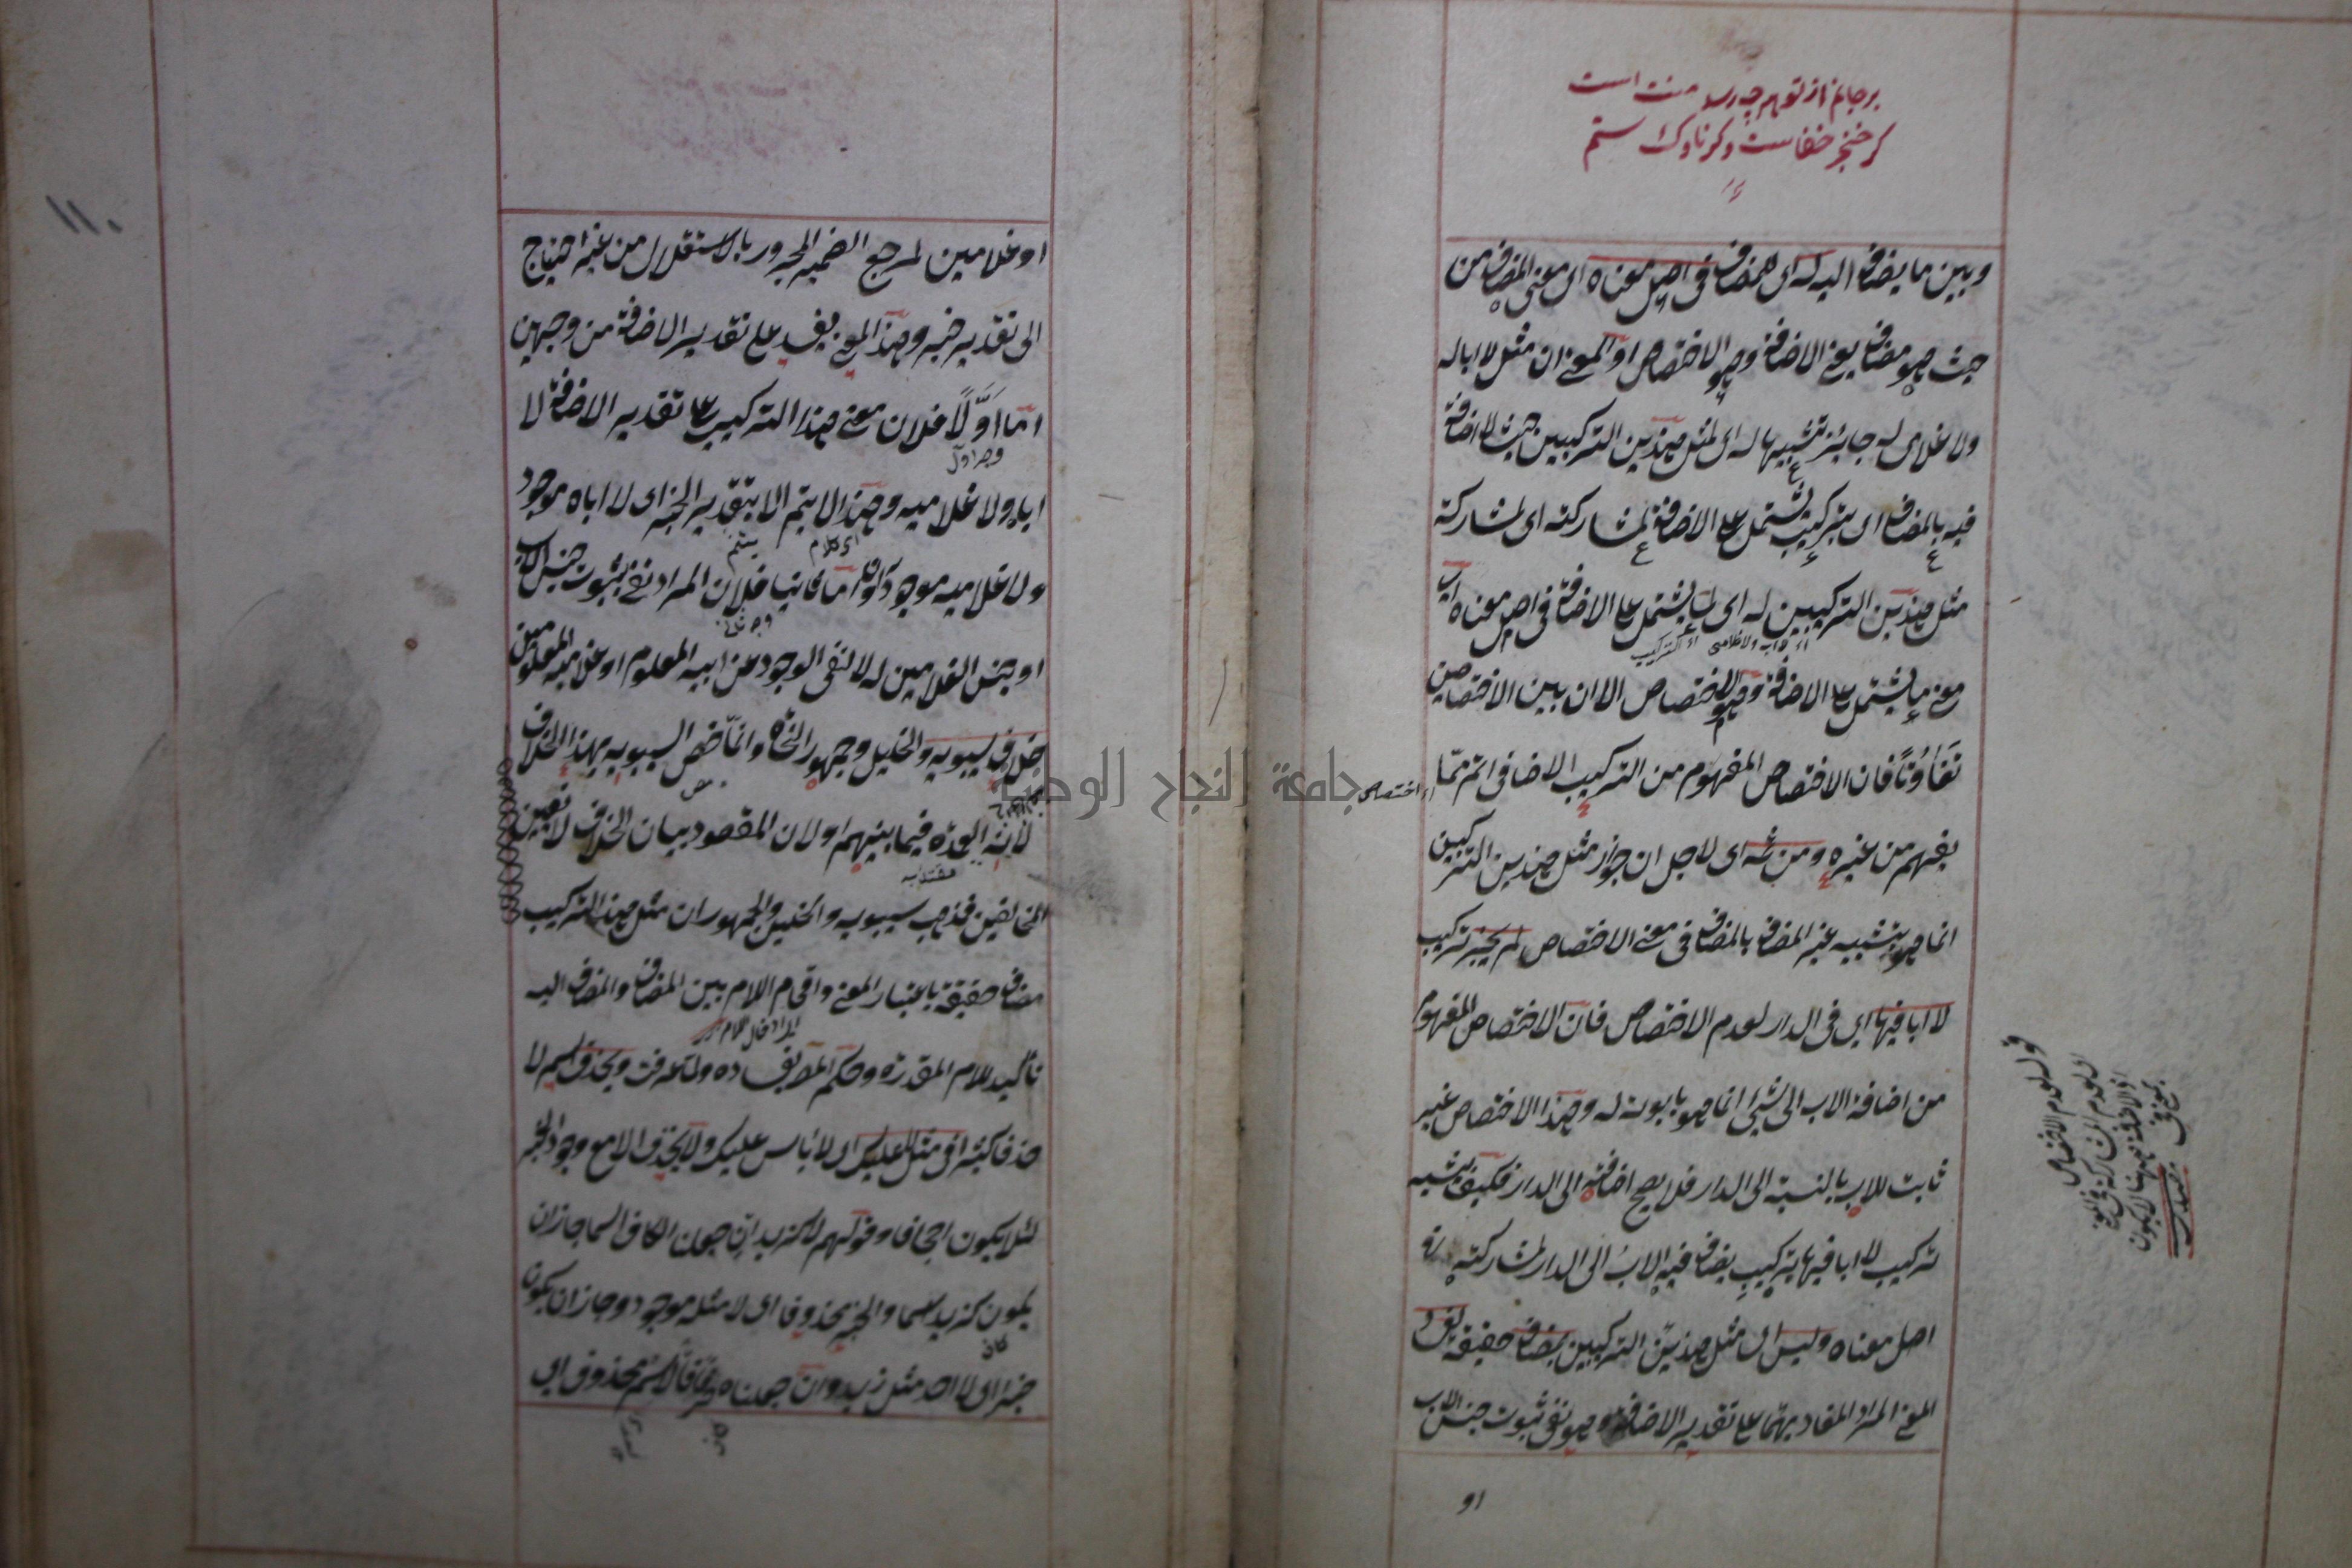 بر جانم از تو هر چه رسد منت است
كر خنجر جفاست وكر ناوك ستم
وبين ما يضاف اليه له اى للمضاف فى اصل معناه اى معنى المضاف من
حيث هو مضاف يعنى الاضافة وهو الاختصاص او المعنى ان مثل لا ابا له
ولا غلامى له جايز تشبيها له اى لمثل هذين التركيبين حيث لا اضافة
فيه بالمضاف اى بتركيب يشتمل على الاضافة لمشاركته اى لمشاركة
مثل هذين التركيبين له اى لما يشتمل على الاضافة فى اصل معناه اى
معنى ما يشتمل على الاضافة وهو الاختصاص الا ان بين الاختصاصين
تفاوتا فان الاختصاص المفهوم من التركيب الاضافى اتم مما
اى اختصاص
يفهم من غيره ومن ثمه اى لاجل ان جواز مثل هذين التركيبين
انما هو بتشبيه غير المضاف بالمضاف فى معنى الاختصاص لم يجز تركيب
لا ابا فيها اى فى الدار لعدم الاختصاص فان الاختصاص المفهوم
من اضافة الاب الى شئ انما هو بابوته له وهذا الاختصاص غير
ثابت للاب بالنسبة الى الدار فلا يصح اضافته الى الدار فكيف يشبه
تركيب لا ابا فيها بتركيب يضاف فيه الاب الى الدار لمشاركته له فى
اصل معناه وليس اى مثل هذين التركيبين بمضاف حقيقة لفساد
المعنى المراد المفاد بهما على تقدير الاضافة وهو نفى ثبوت جنس الاب
او
قوله لعدم الاختصاص
اى لعدم المشاركة فى المعنى
اذ الاضافة ههنا لا يكون
بمعنى فى
١١٠
او غلامين لمرجع الضمير المجرور بالاستقلال من غير احتياج
الى تقدير خبر وهذا المعنى يفسد على تقدير الاضافة من وجهين
اما اولا فلان معنى هذا التركيب على تقدير الاضافة لا
وجه اول
اباه ولا غلاميه وهذا لا يتم الا بتقدير الخبر اى لا اباه موجود
ولا غلاميه موجودان واما ثانيا فلان المراد نفى ثبوت جنس الاب
وجه ثانى
او جنس الغلامين له لا نفى الوجود عن ابيه المعلوم او غلاميه المعلومين
خلافا لسيبويه والخليل وجمهور النحاة وانما خص السيبويه بهذا الخلاف
لانه العمدة فيما بينهم او لان المقصود بيان الخلاف لا تعيين
المخالفين فذهب سيبويه والخليل والجمهور ان مثل هذا التركيب
مضاف حقيقة باعتبار المعنى واقحام اللام بين المضاف والمضاف اليه
تاكيد للام المقدرة وحكم المص بفساده ولما عرفت ويحذف اسم لا
حذفا كثيرا فى مثل لا عليك اى لا باس عليك ولا يحذف الا مع وجود الخبر
لئلا يكون اجحافا وقولهم لا كزيد ان جعلنا الكاف اسما جاز ان
يكون كزيد اسما والخبر محذوفا اى لا مثله موجود وجاز ان يكون
خبرا اى لا احد مثل زيد وان جعلناه حرفا فالاسم محذوف اى
جامعة النجاح الوطنية